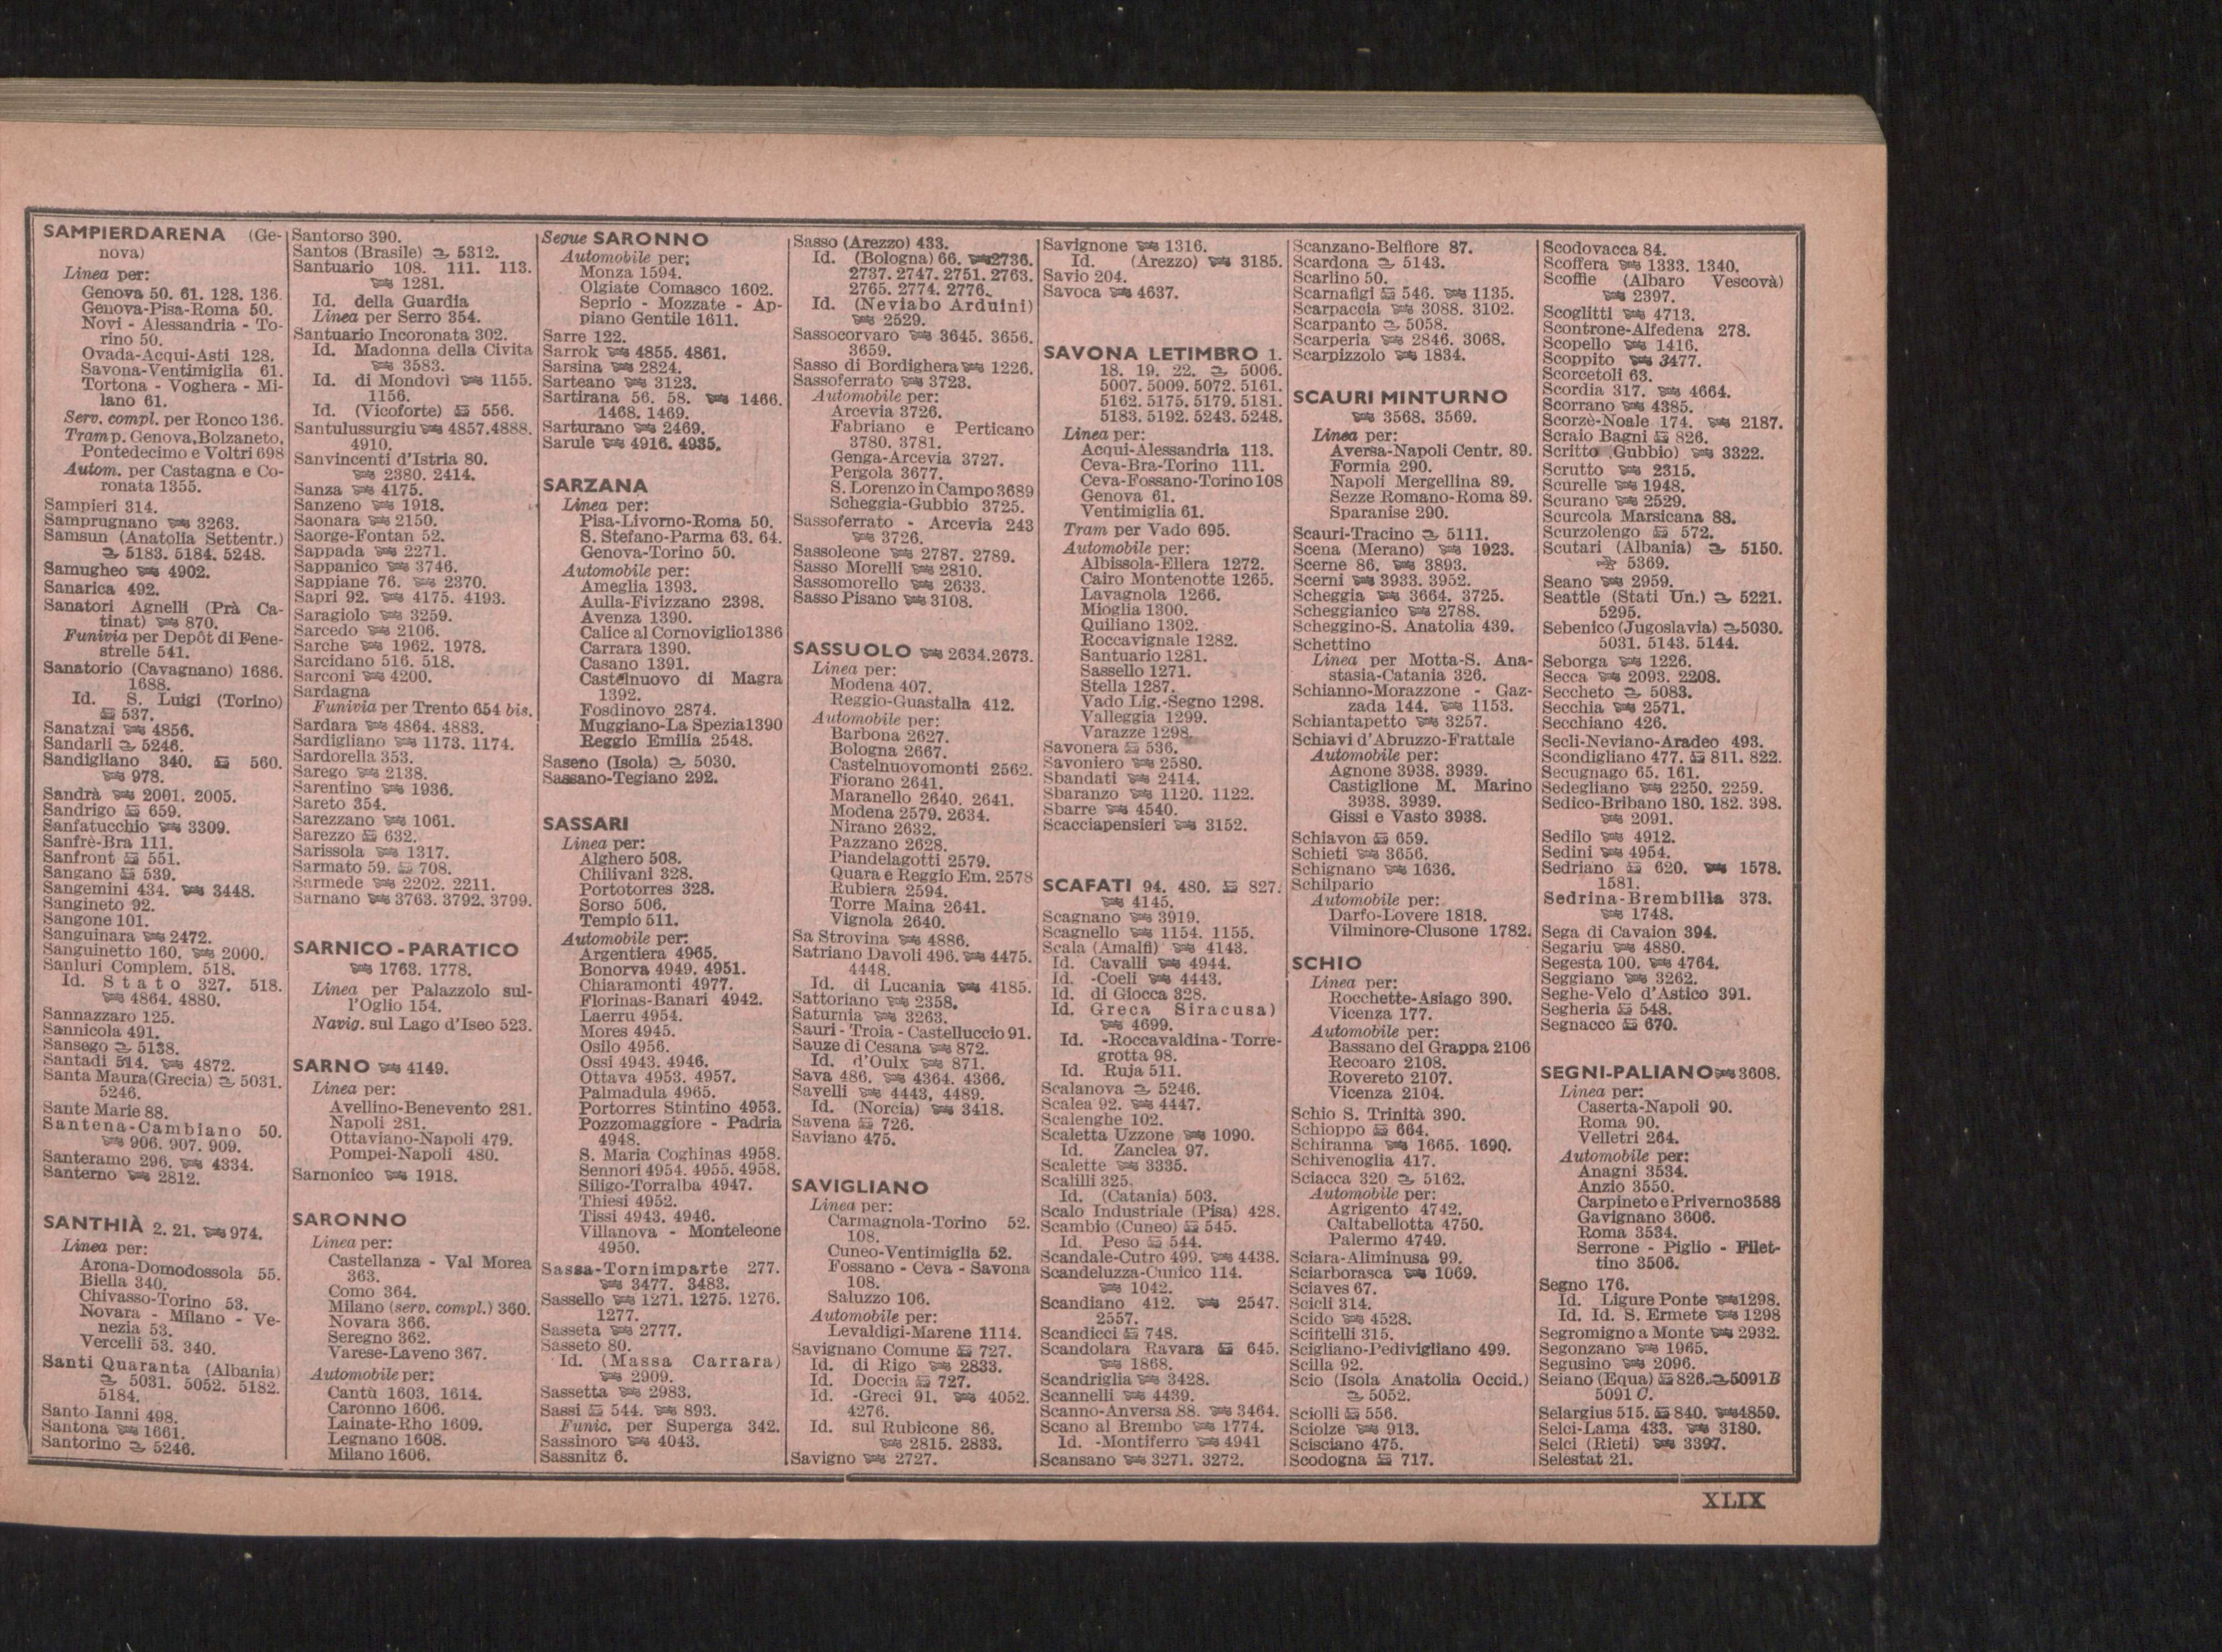 SAMPIERDARENA (Ge-
nova)
Linea per:
Genova 50. 61. 128. 136.
Genova-Pisa-Roma 50.
Novi - Alessandria - To-
rino 50.
Ovada-Acqui-Asti 128.
Savona-Ventimiglia 61.
Tortona - Voghera - Mi-
lano 61.
Serv. compl. per Ronco 136.
Tram p. Genova, Bolzaneto,
Pontedecimo e Voltri 698
Autom. per Castagna e Co-
ronata 1355.
Sampieri 314.
Samprugnano 3263.
Samsun (Anatolia Settentr.)
5183. 5184. 5248.
Samugheo 4902.
Sanarica 492.
Sanatori Agnelli (Prà Ca-
tinat) 870.
Funivia per Depôt di Fene-
strelle 541.
Sanatorio (Cavagnano) 1686.
1688.
Id. S. Luigi (Torino)
537.
Sanatzai 4856.
Sandarli 5246.
Sandigliano 340. 560.
978.
Sandrà 2001. 2005.
Sandrigo 659.
Sanfatucchio 3309.
Sanfrè-Bra 111.
Sanfront 551.
Sangano 539.
Sangemini 434. 3448.
Sangineto 92.
Sangone 101.
Sanguinara 2472.
Sanguinetto 160. 2000.
Sanluri Complem. 518.
Id. Stato 327. 518.
4864. 4880.
Sannazzaro 125.
Sannicola 491.
Sansego 5138.
Santadi 514. 4872.
Santa Maura(Grecia) 5031.
5246.
Sante Marie 88.
Santena-Cambiano 50.
906. 907. 909.
Santeramo 296. 4334.
Santerno 2812.
SANTHIÀ 2. 21. 974.
Linea per:
Arona-Domodossola 55.
Biella 340.
Chivasso-Torino 53.
Novara - Milano - Ve-
nezia 53.
Vercelli 53. 340.
Santi Quaranta (Albania)
5031. 5052. 5182.
5184.
Santo Ianni 498.
Santona 1661.
Santorino 5246.
Santorso 390.
Santos (Brasile) 5312.
Santuario 108. 111. 113.
1281.
Id. della Guardia
Linea per Serro 354.
Santuario Incoronata 302.
Id. Madonna della Civita
3583.
Id. di Mondovì 1155.
1156.
Id. (Vicoforte) 556.
Santulussurgiu 4857.4888.
4910.
Sanvincenti d'Istria 80.
2380. 2414.
Sanza 4175.
Sanzeno 1918.
Saonara 2150.
Saorge-Fontan 52.
Sappada 2271.
Sappanico 3746.
Sappiane 76. 2370.
Sapri 92. 4175. 4193.
Saragiolo 3259.
Sarcedo 2106.
Sarche 1962. 1978.
Sarcidano 516. 518.
Sarconi 4200.
Sardagna
Funivia per Trento 654 bis.
Sardara 4864. 4883.
Sardigliano 1173. 1174.
Sardorella 353.
Sarego 2138.
Sarentino 1936.
Sareto 354.
Sarezzano 1061.
Sarezzo 632.
Sarissola 1317.
Sarmato 59. 708.
Sarmede 2202. 2211.
Sarnano 3763. 3792. 3799.
SARNICO - PARATICO
1763. 1778.
Linea per Palazzolo sul-
l'Oglio 154.
Navig. sul Lago d'Iseo 523.
SARNO 4149.
Linea per:
Avellino-Benevento 281.
Napoli 281.
Ottaviano-Napoli 479.
Pompei-Napoli 480.
Sarnonico 1918.
SARONNO
Linea per:
Castellanza - Val Morea
363.
Como 364.
Milano (serv. compl.) 360.
Novara 366.
Seregno 362.
Varese-Laveno 367.
Automobile per:
Cantù 1603. 1614.
Caronno 1606.
Lainate-Rho 1609.
Legnano 1608.
Milano 1606.
Segue SARONNO
Automobile per:
Monza 1594.
Olgiate Comasco 1602.
Seprio - Mozzate - Ap-
piano Gentile 1611.
Sarre 122.
Sarrok 4855. 4861.
Sarsina 2824.
Sarteano 3123.
Sartirana 56. 58. 1466.
1468. 1469.
Sarturano 2469.
Sarule 4916. 4935.
SARZANA
Linea per:
Pisa-Livorno-Roma 50.
S. Stefano-Parma 63. 64.
Genova-Torino 50.
Automobile per:
Ameglia 1393.
Aulla-Fivizzano 2398.
Avenza 1390.
Calice al Cornoviglio1386
Carrara 1390.
Casano 1391.
Castelnuovo di Magra
1392.
Fosdinovo 2874.
Muggiano-La Spezia1390
Reggio Emilia 2548.
Saseno (Isola) 5030.
Sassano-Tegiano 292.
SASSARI
Linea per:
Alghero 508.
Chilivani 328.
Portotorres 328.
Sorso 506.
Tempio 511.
Automobile per:
Argentiera 4965.
Bonorva 4949. 4951.
Chiaramonti 4977.
Florinas-Banari 4942.
Laerru 4954.
Mores 4945.
Osilo 4956.
Ossi 4943. 4946.
Ottava 4953. 4957.
Palmadula 4965.
Portorres Stintino 4953.
Pozzomaggiore - Padria
4948.
S. Maria Coghinas 4958.
Sennori 4954. 4955. 4958.
Siligo-Torralba 4947.
Thiesi 4952.
Tissi 4943. 4946.
Villanova - Monteleone
4950.
Sassa-Tornimparte 277.
3477. 3483.
Sassello 1271. 1275. 1276.
1277.
Sasseta 2777.
Sasseto 80.
Id. (Massa Carrara)
2909.
Sassetta 2983.
Sassi 544. 893.
Funic. per Superga 342.
Sassinoro 4043.
Sassnitz 6.
Sasso (Arezzo) 433.
Id. (Bologna) 66. 2736.
2737. 2747. 2751. 2763.
2765. 2774. 2776.
Id. (Neviabo Arduini)
2529.
Sassocorvaro 3645. 3656.
3659.
Sasso di Bordighera 1226.
Sassoferrato 3723.
Automobile per:
Arcevia 3726.
Fabriano e Perticano
3780. 3781.
Genga-Arcevia 3727.
Pergola 3677.
S. Lorenzo in Campo3689
Scheggia-Gubbio 3725.
Sassoferrato - Arcevia 243
3726.
Sassoleone 2787. 2789.
Sasso Morelli 2810.
Sassomorello 2633.
Sasso Pisano 3108.
SASSUOLO 2634.2673.
Linea per:
Modena 407.
Reggio-Guastalla 412.
Automobile per:
Barbona 2627.
Bologna 2667.
Castelnuovomonti 2562.
Fiorano 2641.
Maranello 2640. 2641.
Modena 2579. 2634.
Nirano 2632.
Pazzano 2628.
Piandelagotti 2579.
Quara e Reggio Em. 2578
Rubiera 2594.
Torre Maina 2641.
Vignola 2640.
Sa Strovina 4886.
Satriano Davoli 496. 4475.
4448.
Id. di Lucania 4185.
Sattoriano 2358.
Saturnia 3263.
Sauri - Troia - Castelluccio 91.
Sauze di Cesana 872.
Id. d'Oulx 871.
Sava 486. 4364. 4366.
Savelli 4443. 4489.
Id. (Norcia) 3418.
Savena 726.
Saviano 475.
SAVIGLIANO
Linea per:
Carmagnola-Torino 52.
108.
Cuneo-Ventimiglia 52.
Fossano - Ceva - Savona
108.
Saluzzo 106.
Automobile per:
Levaldigi-Marene 1114.
Savignano Comune 727.
Id. di Rigo 2833.
Id. Doccia 727.
Id. -Greci 91. 4052.
4276.
Id. sul Rubicone 86.
2815. 2833.
Savigno 2727.
Savignone 1316.
Id. (Arezzo) 3185.
Savio 204.
Savoca 4637.
SAVONA LETIMBRO 1.
18. 19. 22. 5006.
5007. 5009. 5072. 5161.
5162. 5175. 5179. 5181.
5183. 5192. 5243. 5248.
Linea per:
Acqui-Alessandria 113.
Ceva-Bra-Torino 111.
Ceva-Fossano-Torino 108
Genova 61.
Ventimiglia 61.
Tram per Vado 695.
Automobile per:
Albissola-Ellera 1272.
Cairo Montenotte 1265.
Lavagnola 1266.
Mioglia 1300.
Quiliano 1302.
Roccavignale 1282.
Santuario 1281.
Sassello 1271.
Stella 1287.
Vado Lig.-Segno 1298.
Valleggia 1299.
Varazze 1298.
Savonera 536.
Savoniero 2580.
Sbandati 2414.
Sbaranzo 1120. 1122.
Sbarre 4540.
Scacciapensieri 3152.
SCAFATI 94. 480. 827.
4145.
Scagnano 3919.
Scagnello 1154. 1155.
Scala (Amalfi) 4143.
Id. Cavalli 4944.
Id. -Coeli 4443.
Id. di Giocca 328.
Id. Greca Siracusa)
4699.
Id. -Roccavaldina-Torre-
grotta 98.
Id. Ruja 511.
Scalanova 5246.
Scalea 92. 4447.
Scalenghe 102.
Scaletta Uzzone 1090.
Id. Zanclea 97.
Scalette 3335.
Scalilli 325.
Id. (Catania) 503.
Scalo Industriale (Pisa) 428.
Scambio (Cuneo) 545.
Id. Peso 544.
Scandale-Cutro 499. 4438.
Scandeluzza-Cunico 114.
1042.
Scandiano 412. 2547.
2557.
Scandicci 748.
Scandolara Ravara 645.
1868.
Scandriglia 3428.
Scannelli 4439.
Scanno-Anversa 88. 3464.
Scano al Brembo 1774.
Id. -Montiferro 4941
Scansano 3271. 3272.
Scanzano-Belfiore 87.
Scardona 5143.
Scarlino 50.
Scarnafigi 546. 1135.
Scarpaccia 3088. 3102.
Scarpanto 5058.
Scarperia 2846. 3068.
Scarpizzolo 1834.
SCAURI MINTURNO
3568. 3569.
Linea per:
Aversa-Napoli Centr. 89.
Formia 290.
Napoli Mergellina 89.
Sezze Romano-Roma 89.
Sparanise 290.
Scauri-Tracino 5111.
Scena (Merano) 1923.
Scerne 86. 3893.
Scerni 3933. 3952.
Scheggia 3664. 3725.
Scheggianico 2788.
Scheggino-S. Anatolia 439.
Schettino
Linea per Motta-S. Ana-
stasia-Catania 326.
Schianno-Morazzone - Gaz-
zada 144. 1153.
Schiantapetto 3257.
Schiavi d'Abruzzo-Frattale
Automobile per:
Agnone 3938. 3939.
Castiglione M. Marino
3938. 3939.
Gissi e Vasto 3938.
Schiavon 659.
Schieti 3656.
Schignano 1636.
Schilpario
Automobile per:
Darfo-Lovere 1818.
Vilminore-Clusone 1782.
SCHIO
Linea per:
Rocchette-Asiago 390.
Vicenza 177.
Automobile per:
Bassano del Grappa 2106
Recoaro 2108.
Rovereto 2107.
Vicenza 2104.
Schio S. Trinità 390.
Schioppo 664.
Schiranna 1665. 1690.
Schivenoglia 417.
Sciacca 320 5162.
Automobile per:
Agrigento 4742.
Caltabellotta 4750.
Palermo 4749.
Sciara-Aliminusa 99.
Sciarborasca 1069.
Sciaves 67.
Scicli 314.
Scido 4528.
Scifitelli 315.
Scigliano-Pedivigliano 499.
Scilla 92.
Scio (Isola Anatolia Occid.)
5052.
Sciolli 556.
Sciolze 913.
Scisciano 475.
Scodogna 717.
Scodovacca 84.
Scoffera 1333. 1340.
Scoffie (Albaro Vescovà)
2397.
Scoglitti 4713.
Scontrone-Alfedena 278.
Scopello 1416.
Scoppito 3477.
Scorcetoli 63.
Scordia 317. 4664.
Scorrano 4385.
Scorzè-Noale 174. 2187.
Scraio Bagni 826.
Scritto Gubbio) 3322.
Scrutto 2315.
Scurelle 1948.
Scurano 2529.
Scurcola Marsicana 88.
Scurzolengo 572.
Scutari (Albania) 5150.
5369.
Seano 2959.
Seattle (Stati Un.) 5221.
5295.
Sebenico (Jugoslavia) 5030.
5031. 5143. 5144.
Seborga 1226.
Secca 2093. 2208.
Seccheto 5083.
Secchia 2571.
Secchiano 426.
Secli-Neviano-Aradeo 493.
Scondigliano 477. 811. 822.
Secugnago 65. 161.
Sedegliano 2250. 2259.
Sedico-Bribano 180. 182. 398.
2091.
Sedilo 4912.
Sedini 4954.
Sedriano 620. 1578.
1581.
Sedrina-Brembilla 373.
1748.
Sega di Cavaion 394.
Segariu 4880.
Segesta 100. 4764.
Seggiano 3262.
Seghe-Velo d'Astico 391.
Segheria 548.
Segnacco 670.
SEGNI-PALIANO 3608.
Linea per:
Caserta-Napoli 90.
Roma 90.
Velletri 264.
Automobile per:
Anagni 3534.
Anzio 3550.
Carpineto e Priverno3588
Gavignano 3606.
Roma 3534.
Serrone - Piglio - Filet-
tino 3506.
Segno 176.
Id. Ligure Ponte 1298.
Id. Id. S. Ermete 1298
Segromigno a Monte 2932.
Segonzano 1965.
Segusino 2096.
Seiano (Equa) 826. 5091B
5091 C.
Selargius 515. 840. 4859.
Selci-Lama 433. 3180.
Selci (Rieti) 3397.
Selestat 21.
XLIX